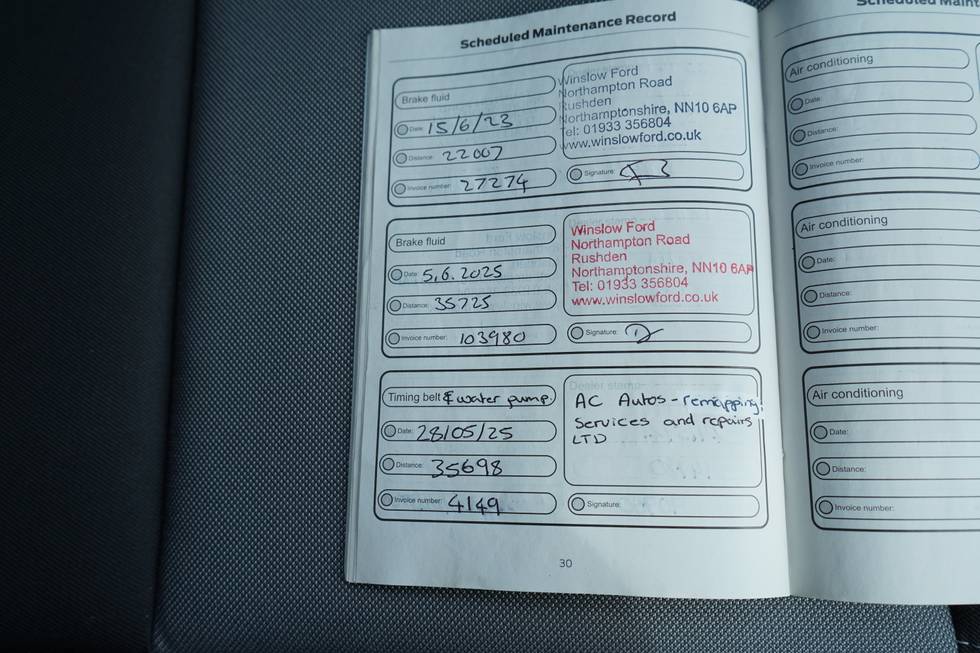 Scheduled Maintenance Record
Brake fluid
Date: 15/6/23
Distance: 22007
Invoice number: 27274
Winslow Ford
Northampton Road
Rushden
Northamptonshire, NN10 6AP
Tel: 01933 356804
www.winslowford.co.uk
Signature:
Brake fluid
Date: 5.6.2025
Distance: 35725
Invoice number: 103980
Winslow Ford
Northampton Road
Rushden
Northamptonshire, NN10 6AP
Tel: 01933 356804
www.winslowford.co.uk
Signature:
Timing belt & water pump.
Date: 28/05/25
Distance: 35698
Invoice number: 4149
Dealer stamp
AC Autos - remapping,
Services and repairs
LTD
Signature:
30
Scheduled Maint
Air conditioning
Date:
Distance:
Invoice number:
Air conditioning
Date:
Distance:
Invoice number:
Air conditioning
Date:
Distance:
Invoice number: